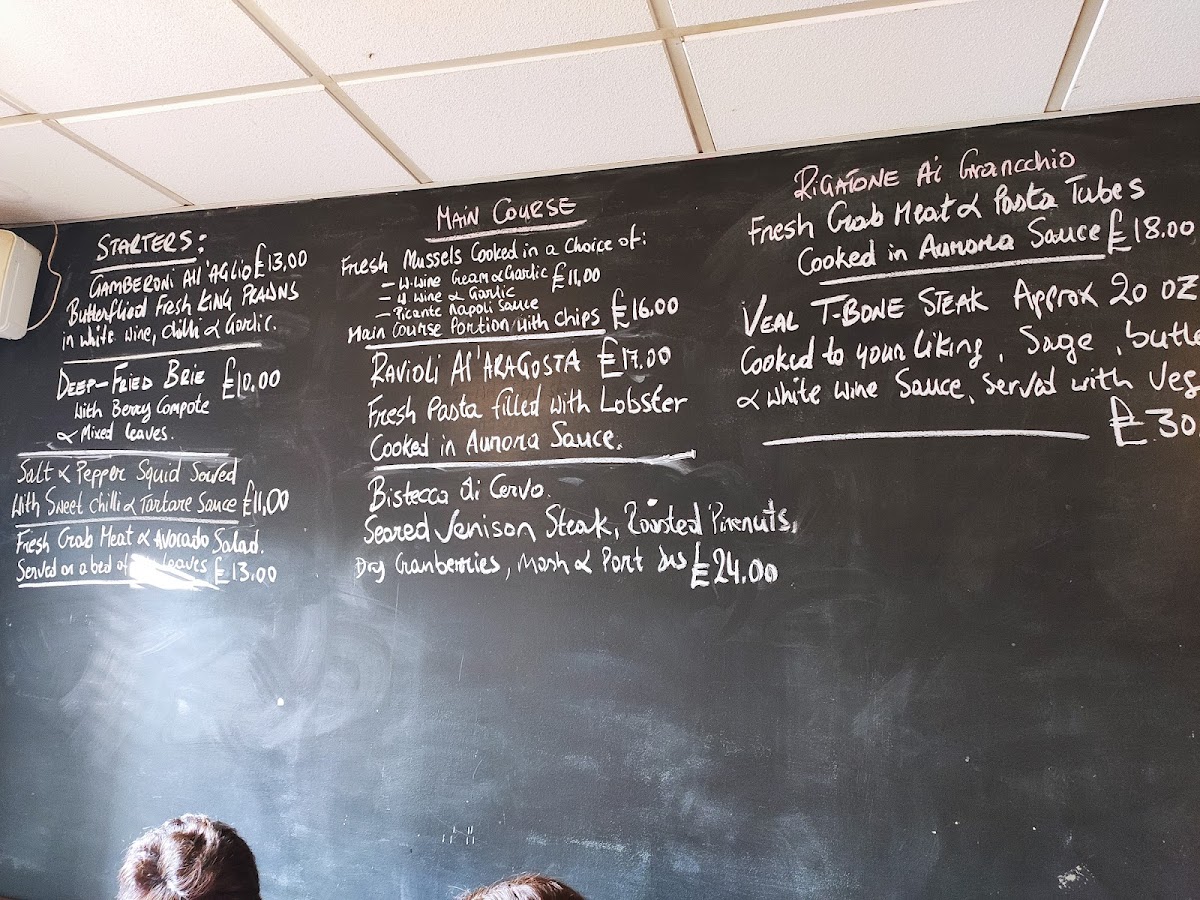 STARTERS:
GAMBERONI All'AGLIO £13,00
Butterflied Fresh KING PRAWNS
in white wine, Chilli & Garlic.
DEEP-FRIED BRIE £10.00
With Berry Compote
& Mixed leaves.
Salt & Pepper Squid Served
With Sweet Chilli & Tartare Sauce £11,00
Fresh Crab Meat & Avocado Salad.
Served on a bed of leaves £13.00
MAIN COURSE
Fresh Mussels Cooked in a Choice of:
- W.Wine Cream & Garlic £11,00
- W.Wine & Garlic
- Picante Napoli Sauce
Main Course Portion with Chips £16.00
RAVIOLI Al'ARAGOSTA £17.00
Fresh Pasta filled with Lobster
Cooked in Aurora Sauce.
Bistecca di Cervo.
Seared Venison Steak, Roasted Pinenuts,
Dry Cranberries, Mash & Port Jus £24.00
RIGATONE Ai Grancchio
Fresh Crab Meat & Pasta Tubes
Cooked in Aurora Sauce £18.00
VEAL T-BONE STEAK Approx 20 OZ
Cooked to your liking, Sage, butte
& white wine Sauce, served with Veg
£30